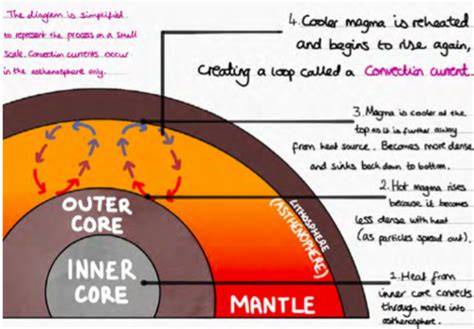 The diagram is simplified
to represent the process on a small
scale. Convection currents occur
in the asthenosphere only.
4. Cooler magma is reheated
and begins to rise again,
creating a loop called a Convection current.
3. Magma is cooler at the
top as it is further away
from heat source. Becomes more dense
and sinks back down to bottom.
2. Hot magma rises
because it becomes
less dense with heat
(as particles spread out).
1. Heat from
inner core convects
through mantle into
asthenosphere.
LITHOSPHERE
(ASTHENOPHERE)
OUTER
CORE
INNER
CORE
MANTLE